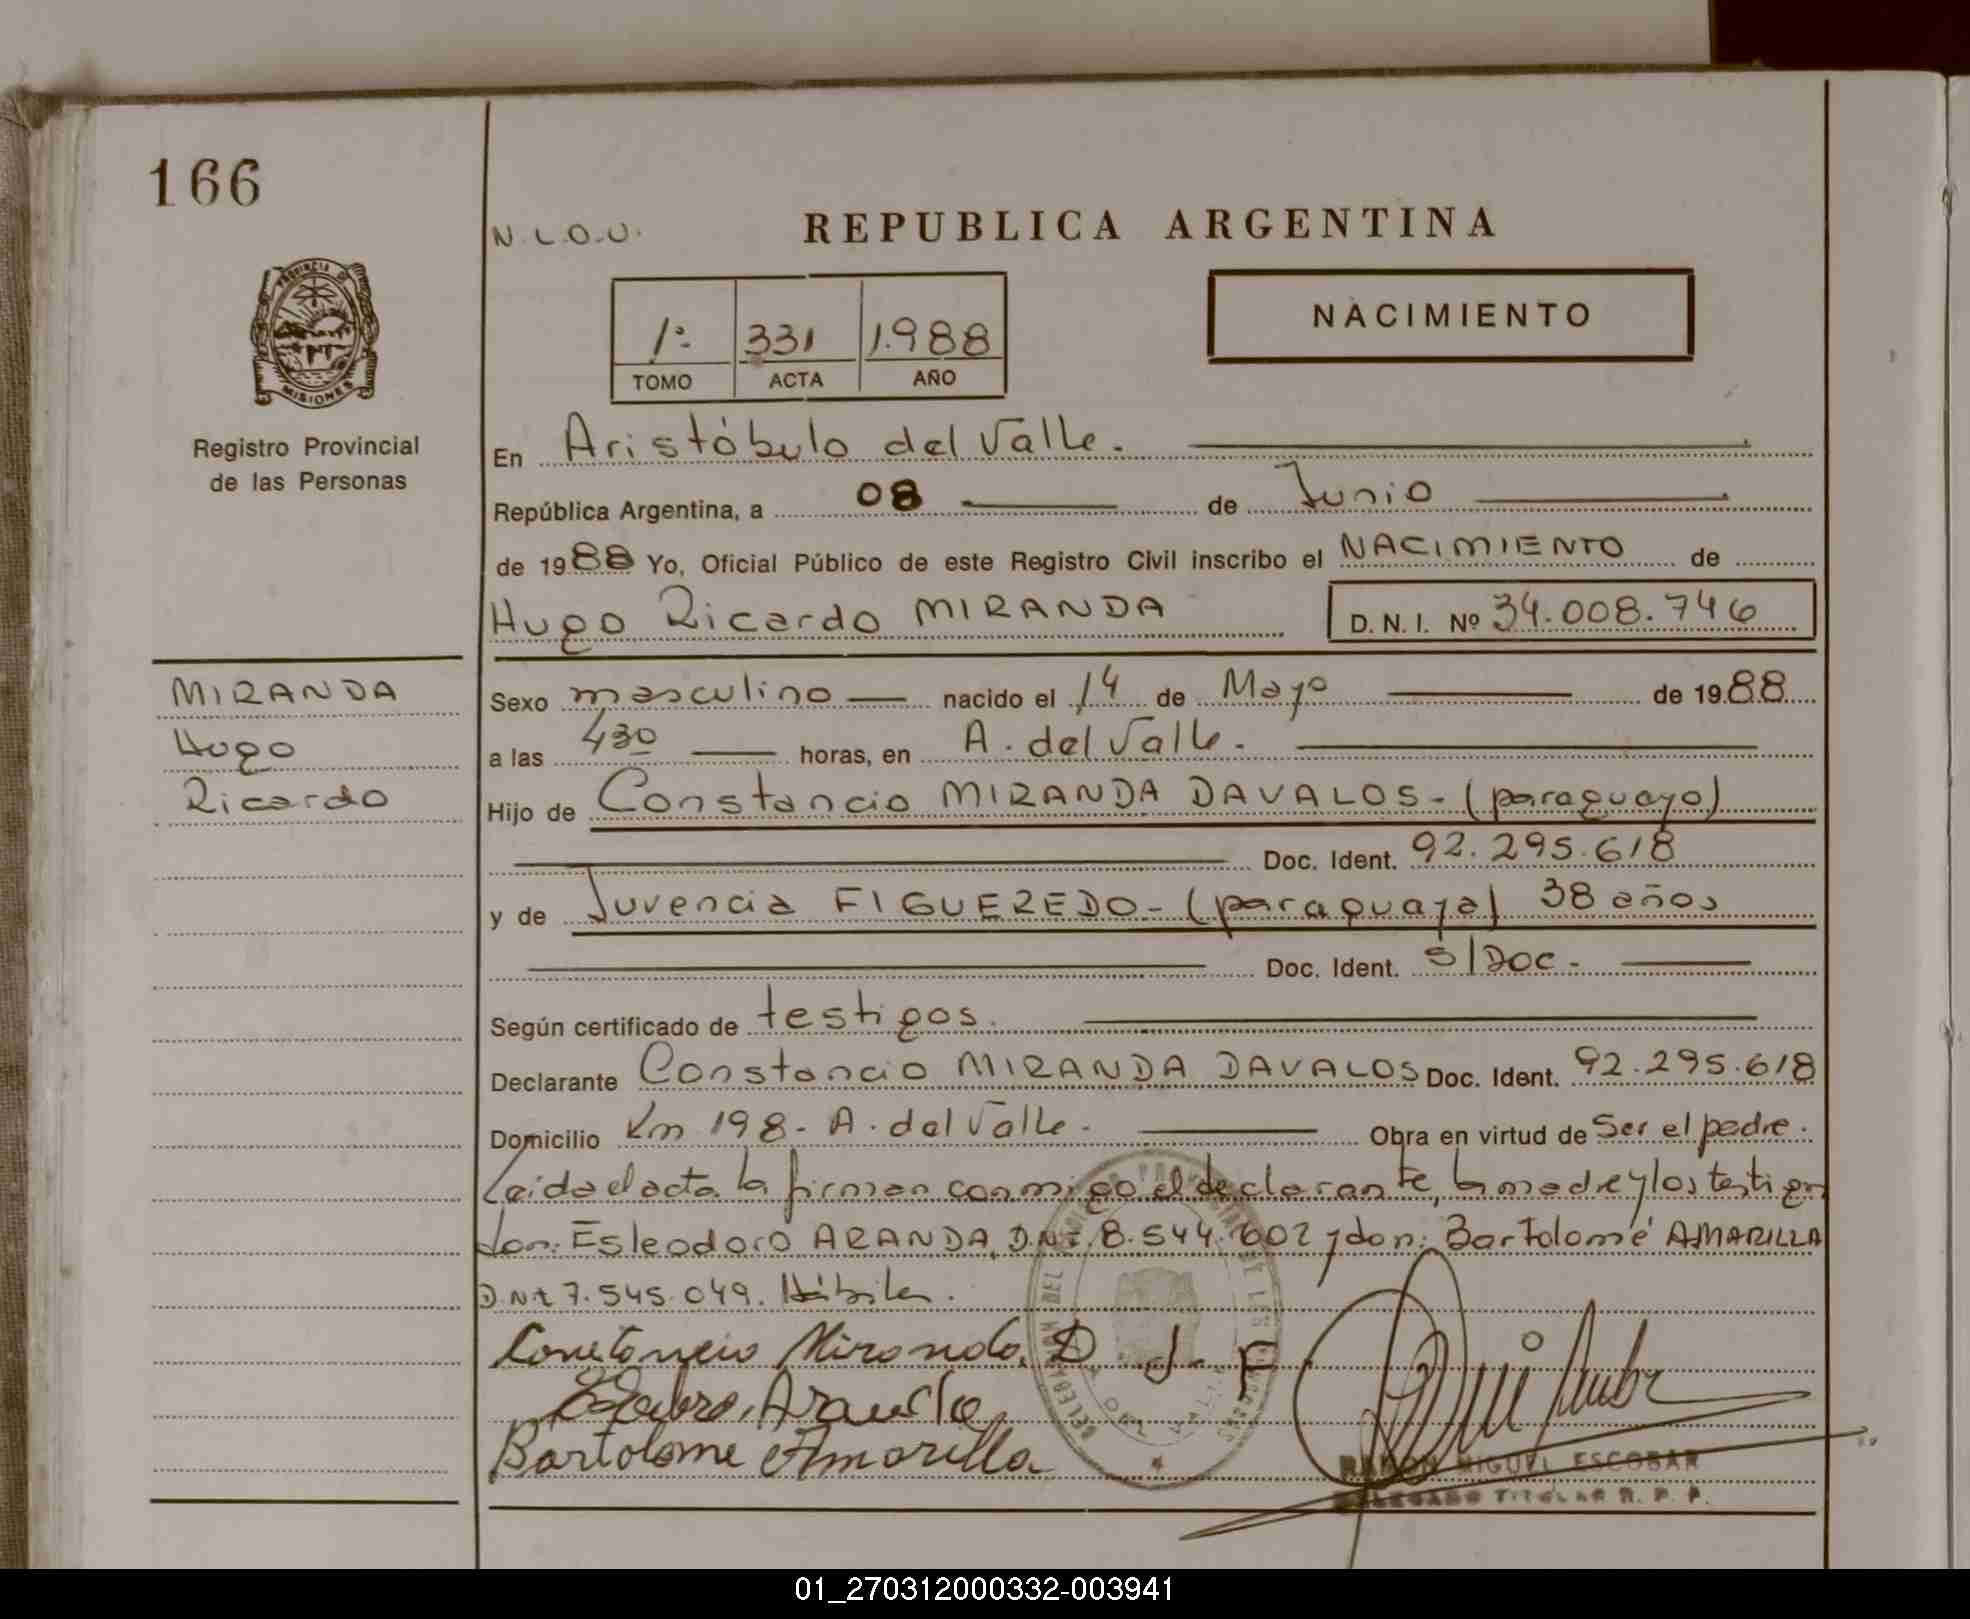 166
N.L.O.U.
REPUBLICA ARGENTINA
PROVINCIA DE MISIONES
Registro Provincial
de las Personas
1º 331 1.988
TOMO ACTA AÑO
NACIMIENTO
En Aristóbulo del Valle.
República Argentina, a 08 de Junio
de 1988 Yo, Oficial Público de este Registro Civil inscribo el NACIMIENTO de
Hugo Ricardo MIRANDA D.N.I. Nº 34.008.746
MIRANDA
Hugo
Ricardo
Sexo masculino nacido el 14 de Mayo de 1988
a las 430 horas, en A. del Valle.
Hijo de Constancio MIRANDA DAVALOS - (paraguayo)
Doc. Ident. 92.295.618
y de Juvencia FIGUEREDO - (paraguaya) 38 años
Doc. Ident. S/Doc -
Según certificado de testigos.
Declarante Constancio MIRANDA DAVALOS Doc. Ident. 92.295.618
Domicilio Km 198 - A. del Valle - Obra en virtud de Ser el padre.
Leida el acta la firman conmigo el declarante, la madre y los testigos
don: Esleodoro ARANDA, D.N.I. 8.544.602 y don: Bartolomé AMARILLA
D.N.I 7.545.049. Hábiles.
Constancio Miranda. D J. F
Bartolome Amarilla
RAMON MIGUEL ESCOBAR
DELEGADO TITULAR R. P. P.
01_270312000332-003941